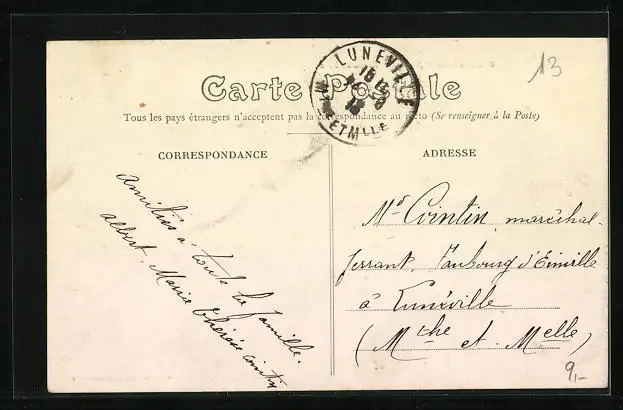 Carte Postale
Tous les pays étrangers n'acceptent pas la correspondance au recto (Se renseigner à la Poste)
LUNEVILLE
MTHE ETMLLE
13
CORRESPONDANCE
amitiés à toute la famille.
albert Marie Thérèse cointin
ADRESSE
Mr Cointin, maréchal-
ferrant, Faubourg d'Einville
à Lunéville
(Mthe et Melle)
9,-